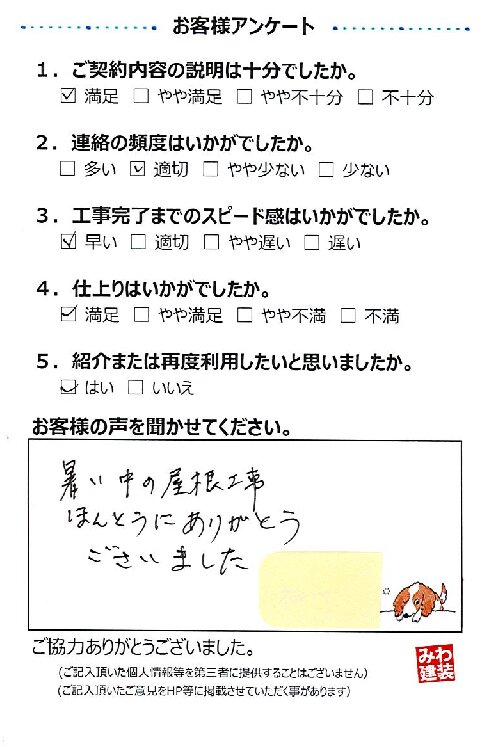 お客様アンケート
1．ご契約内容の説明は十分でしたか。
☑ 満足 □ やや満足 □ やや不十分 □ 不十分
2．連絡の頻度はいかがでしたか。
□ 多い ☑ 適切 □ やや少ない □ 少ない
3．工事完了までのスピード感はいかがでしたか。
☑ 早い □ 適切 □ やや遅い □ 遅い
4．仕上りはいかがでしたか。
☑ 満足 □ やや満足 □ やや不満 □ 不満
5．紹介または再度利用したいと思いましたか。
☑ はい □ いいえ
お客様の声を聞かせてください。
暑い中の屋根工事
ほんとうにありがとう
ございました
ご協力ありがとうございました。
(ご記入頂いた個人情報等を第三者に提供することはございません)
(ご記入頂いたご意見をHP等に掲載させていただく事があります)
みわ
建装